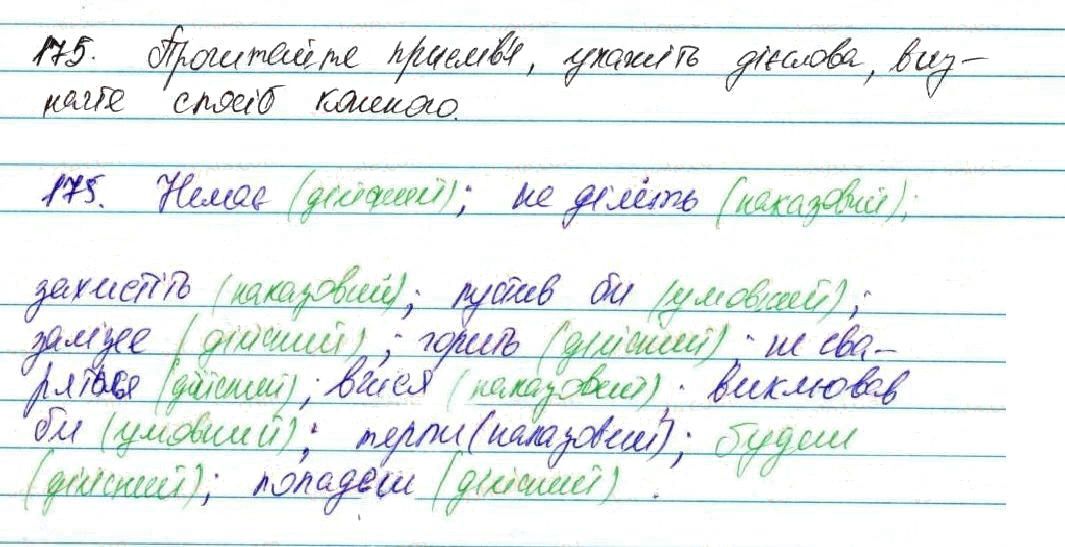 175. Прочитайте прислів'я, укажіть дієслова, виз-
начте спосіб кожного.
175. Немає (дійсний); не діліть (наказовий);
захистіть (наказовий); пустив би (умовний);
залізе (дійсний); горить (дійсний); не сва-
ряться (дійсний); вчися (наказовий); виклював
би (умовний); терпи (наказовий); будеш
(дійсний); попадеш (дійсний).